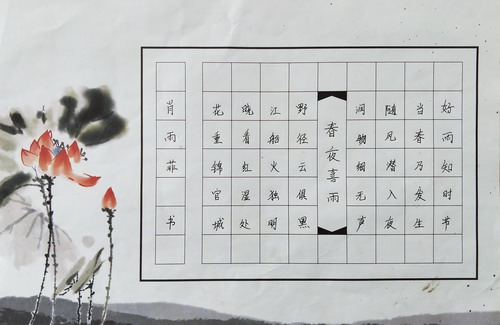 好雨知时节
当春乃发生
随风潜入夜
润物细无声
春夜喜雨
野径云俱黑
江船火独明
晓看红湿处
花重锦官城
肖雨菲 书